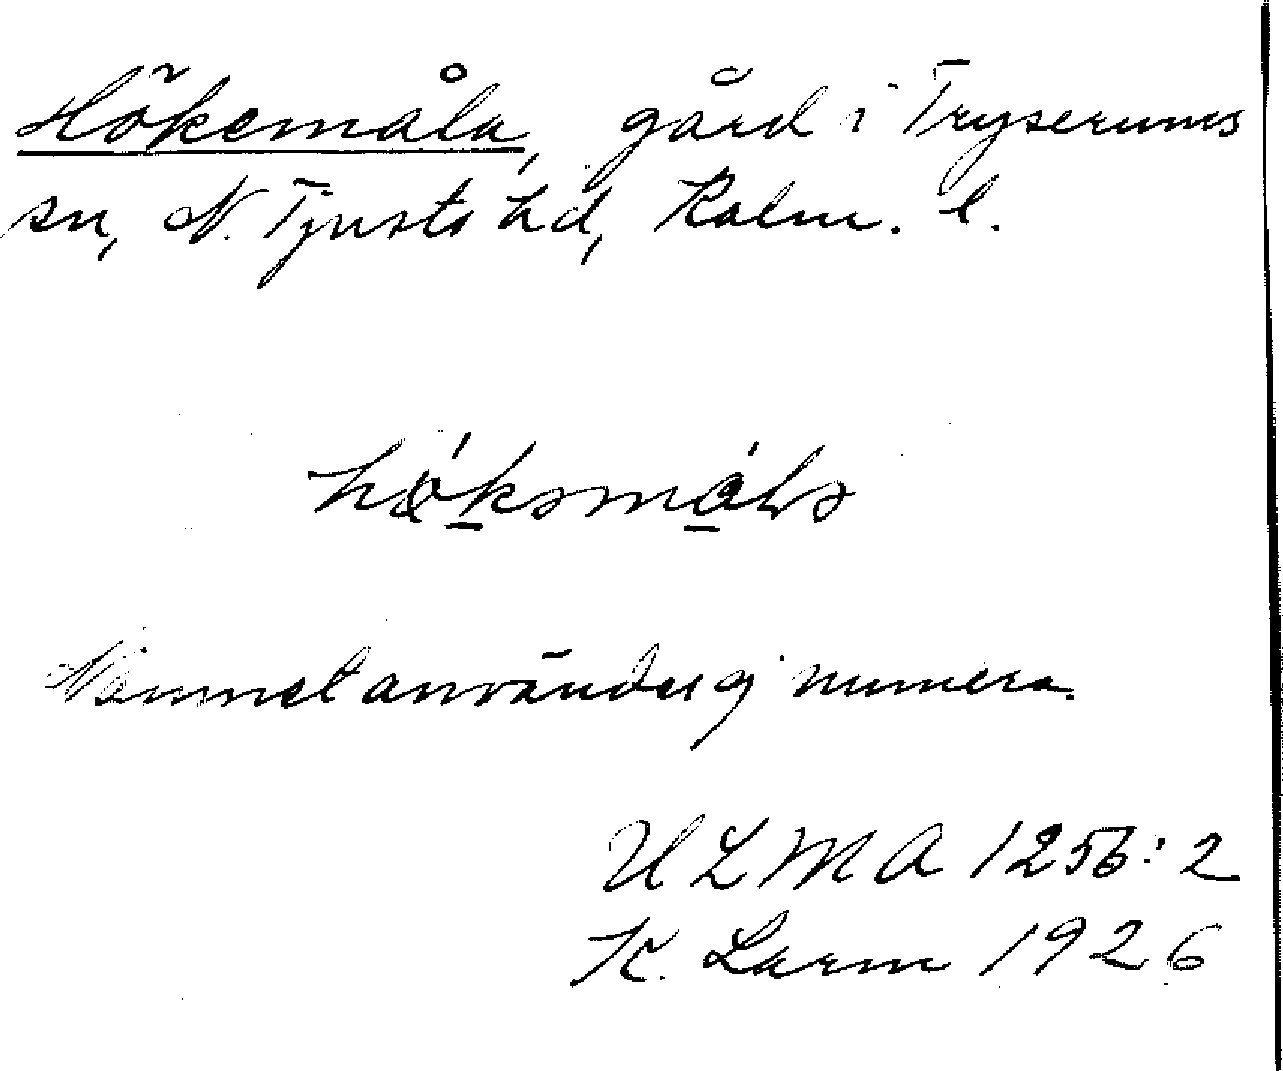 Hökemåla, gård i Tryserums
sn, N. Tjusts hd, Kalm. l.
Namnet användes ej numera.
ULMA 1256:2
K. Larm 1926